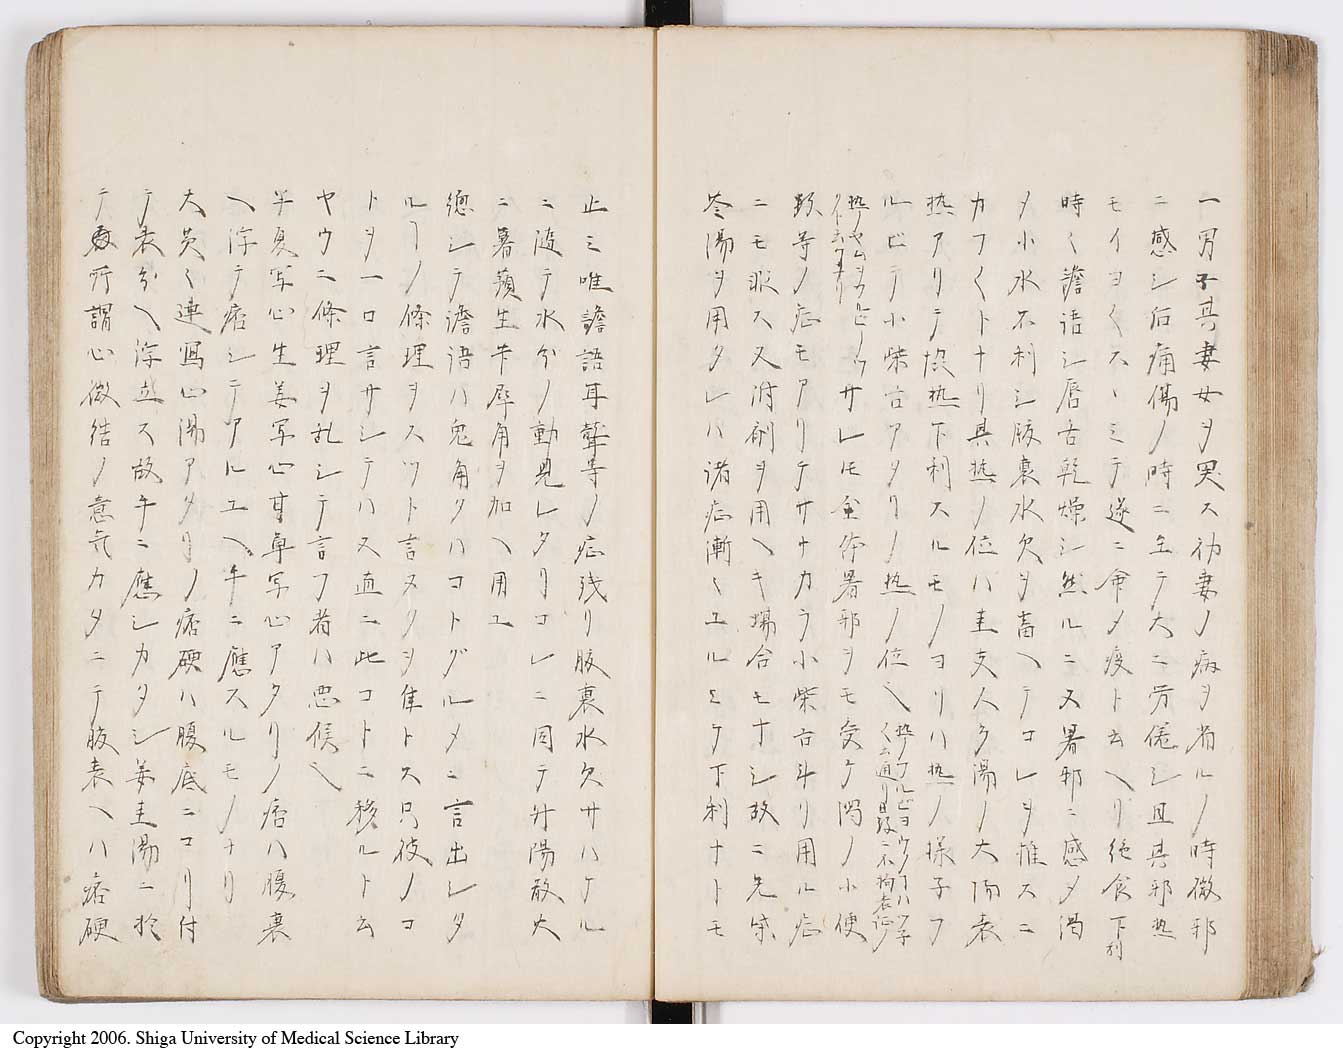 一男子其妻女ヲ哭ス初妻ノ病ヲ省ルノ時微邪
ニ感シ后痛傷ノ時ニ至テ大ニ労倦シ且其邪熱
モイヨ〱スヽミテ遂ニ命メ疫ト云ヘリ絶食下利
時〻譫語シ唇舌乾燥シ然ルニ又暑邪ニ感メ渇
ヲ小水不利シ腹裏水欠ヲ畜ヘテコレヲ推スニ
カフ〱トナリ其热ノ位ハ圭支人タ湯ノ太陽表
热アリテ協热下利スルモノヨリハ热ノ様子フ
ルビテ小柴古アタリノ热ノ位ヘ
热ノフルビヨウノコハ
〱云通リ
サレモ全体暑邪ヲモ受ケ渇ノ小便
等ノ症モアリテサナカラ小柴古斗リ用ル症
ニモ非ス又附剤ヲ用ヘキ場合モナシ故ニ先柴
苓湯ヲ用タレハ諸症漸〻ユルミケ下利ナトモ
止ミ唯譫語耳聾等ノ症残リ腹裏水欠サハケル
ニ随テ水分ノ動見レタリコレニ因テ升陽散火
ニ暑蘋生半犀角ヲ加ヘ用ユ
總シテ譫語ハ鬼角タハコトグルメニ言出レタ
ルコノ條理ヲスツト言ヌクヲ隹トス只彼ノコ
トヲ一口言サシテハス直ニ此コトニ移ルト云
ヤウニ條理ヲ乱シテ言フ者ハ悪候ヘ
半夏写心生姜写心甘草写心アタリノ痞ハ腹裏
ヘ浮テ痞シテアルユヘ手ニ應スルモノナリ
大黄〻連写心湯アタリノ痞硬ハ腹底ニコリ付
テ表分ヘ浮立ス故手ニ應シカタシ姜圭湯ニ於
テ所謂心微結ノ意気カタニテ腹表ヘハ痞硬